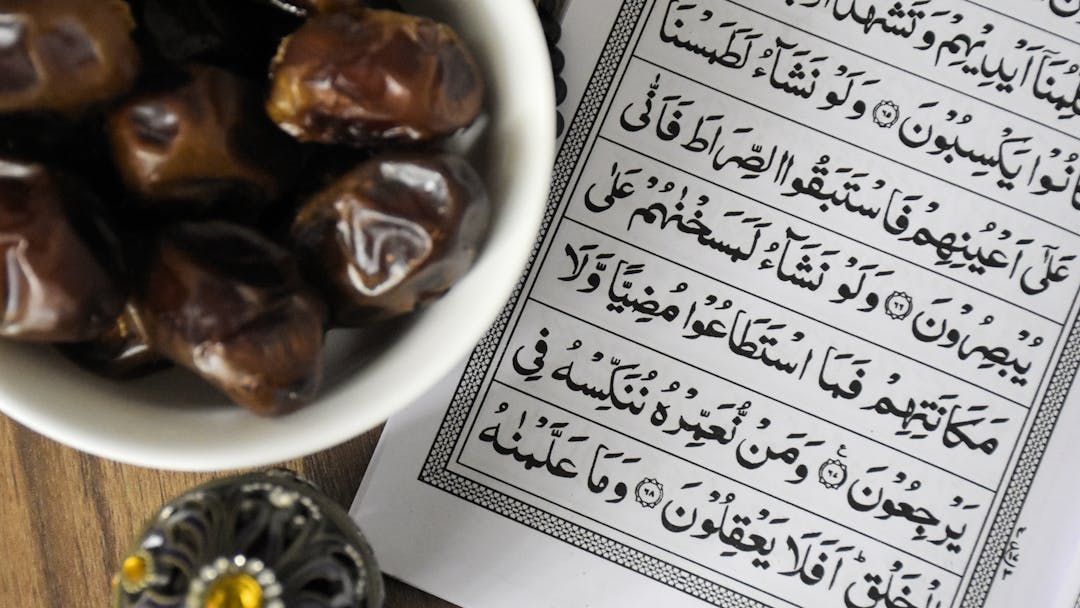 اَيْدِيْهِمْ وَتَشْهَدُ
كَانُوْا يَكْسِبُوْنَ ﴿٦٥﴾ وَلَوْ نَشَآءُ لَطَمَسْنَا
عَلٰٓى اَعْيُنِهِمْ فَاسْتَبَقُوا الصِّرَاطَ فَاَنّٰى
يُبْصِرُوْنَ ﴿٦٦﴾ وَلَوْ نَشَآءُ لَمَسَخْنٰهُمْ عَلٰى
مَكَانَتِهِمْ فَمَا اسْتَطَاعُوْا مُضِيًّا وَّلَا
يَرْجِعُوْنَ ﴿٦٧﴾ وَمَنْ نُّعَمِّرْهُ نُنَكِّسْهُ فِى
الْخَلْقِ ؕ اَفَلَا يَعْقِلُوْنَ ﴿٦٨﴾ وَمَا عَلَّمْنٰهُ